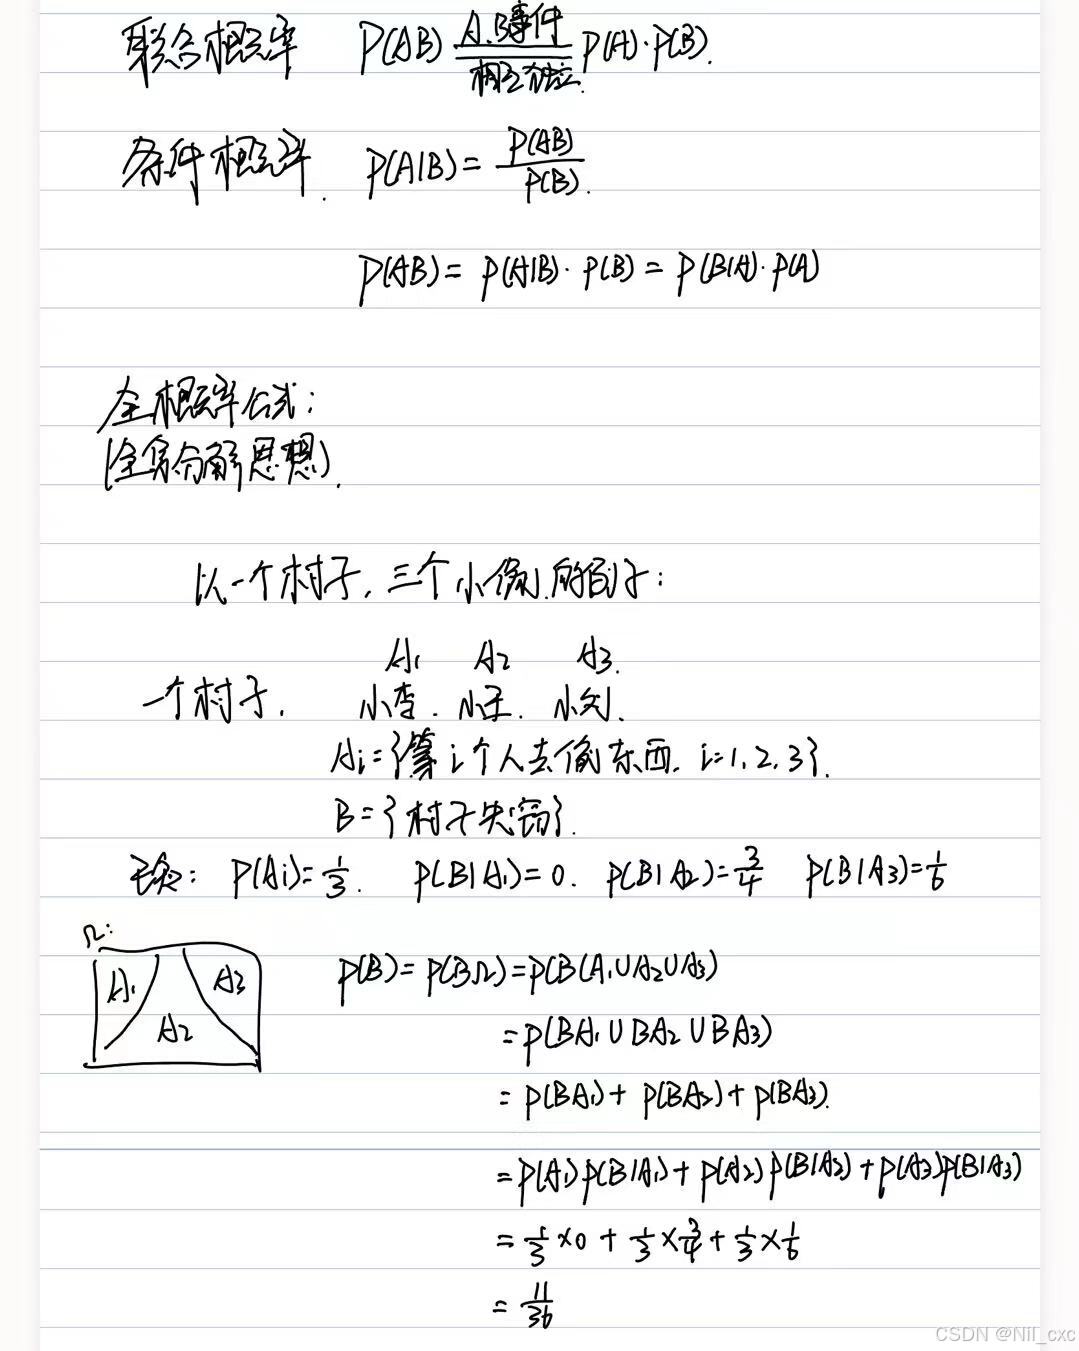 联合概率 P(AB) A.B事件 相互独立 P(A)·P(B).
条件概率. P(A|B) = P(AB) / P(B).
P(AB) = P(A|B)·P(B) = P(B|A)·P(A)
全概率公式:
(全集分解思想).
以一个村子,三个小偷的例子:
A1 A2 A3.
一个村子. 小李. 小王. 小刘.
Ai = {第i个人去偷东西. i=1,2,3}.
B = {村子失窃}.
P(Ai) = 1/3. P(B|A1) = 0. P(B|A2) = 3/4 P(B|A3) = 1/6
Ω:
A1 A2 A3
P(B) = P(BΩ) = P(B(A1∪A2∪A3)
= P(BA1∪BA2∪BA3)
= P(BA1) + P(BA2) + P(BA3).
= P(A1)P(B|A1) + P(A2)P(B|A2) + P(A3)P(B|A3)
= 1/3 × 0 + 1/3 × 3/4 + 1/3 × 1/6
= 11/36
CSDN @Nil_cxc